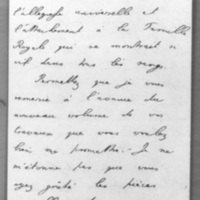 l'allégresse universelle et
l'attachement à la Famille
Royale qui se montrait si
vif dans tous les rangs.
Permettez que je vous
remercie à l'avance du
nouveau volume de vos
travaux que vous voulez
bien me promettre. Je ne
m'étonne pas que vous
ayez goûté les pièces